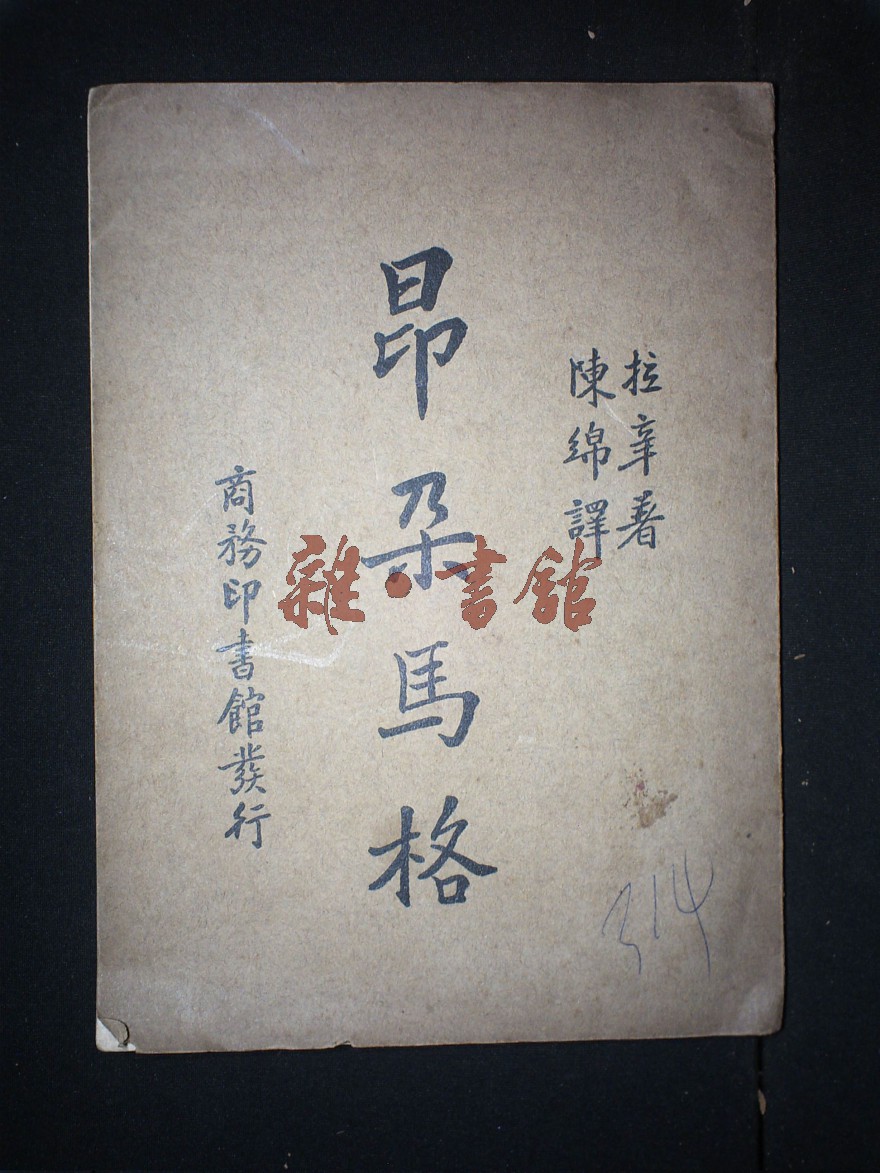 拉辛著
陳綿譯
昂朵馬格
商務印書館發行
雜·書館
314